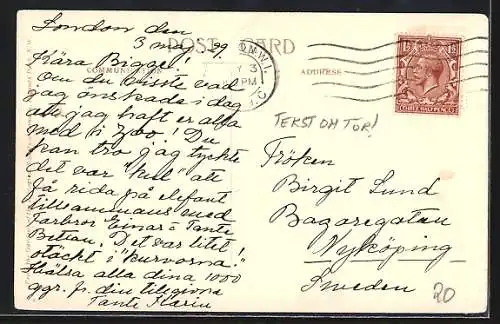 London den
3 maj 29.
POST CARD
COMMUNICATION
ADDRESS
Kära Bigge!
Om du visste vad
jag önskade i dag
att jag haft er alla
med i Zoo! Du
kan tro jag tyckte
det var "kul" att
få rida på elefant
tillsammans med
Farbror Einar o Tante
Bettan. Det var litet
otäckt i "kurvorna"!
Hälsa alla dina 1000
ggr. fr. din tillgivna
Tante Karin
LONDON.W.1.
3
PM
TEKST OM TOR!
Fröken
Birgit Lund
Bagaregatan
Nyköping
Sweden
20